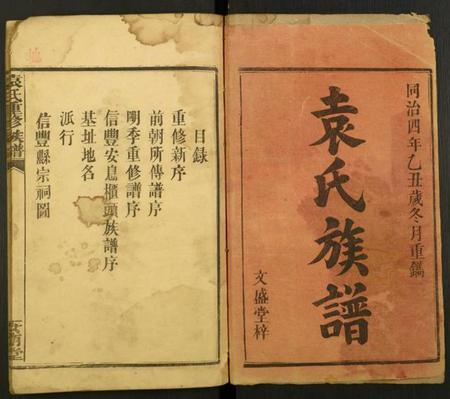 同治四年乙丑歲冬月重鐫
袁氏族譜
文盛堂梓
目录
重修新序
前朝所傳譜序
明季重修譜序
信豐安息櫃頭族譜序
基址地名
派行
信豐縣宗祠圖
袁氏重修族譜
地